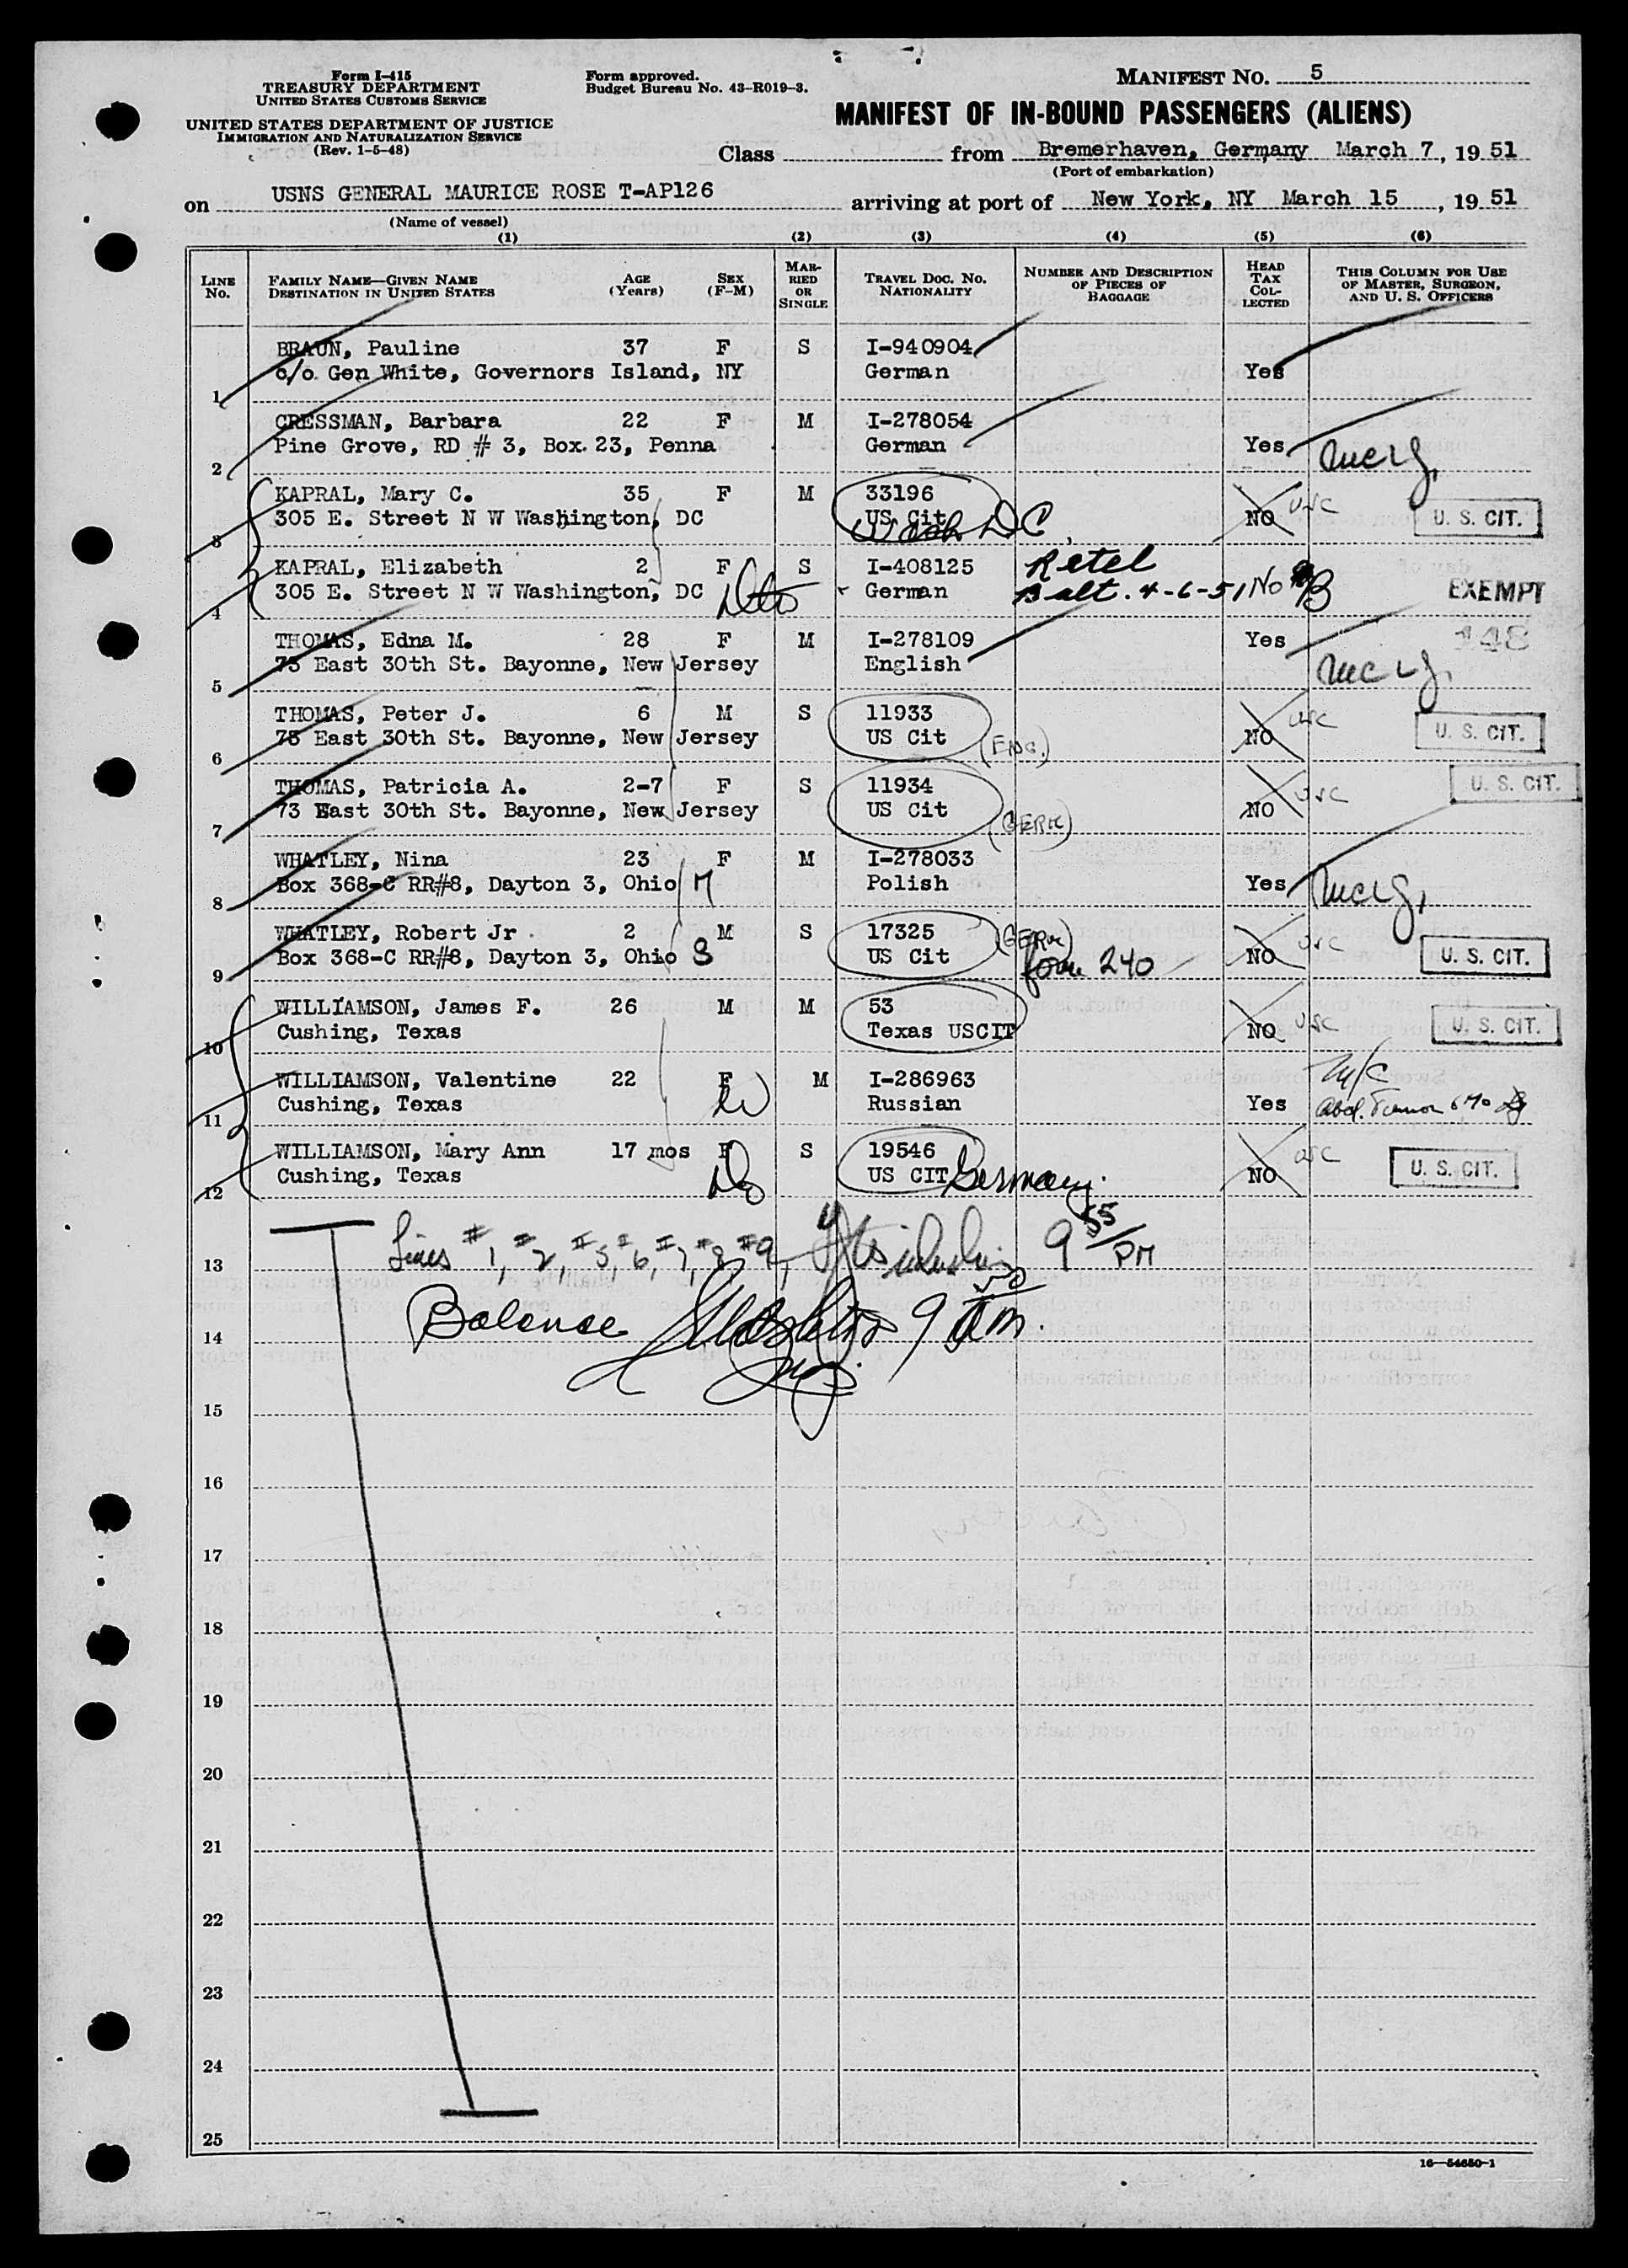 Form I-415
TREASURY DEPARTMENT
UNITED STATES CUSTOMS SERVICE
UNITED STATES DEPARTMENT OF JUSTICE
IMMIGRATION AND NATURALIZATION SERVICE
(Rev. 1-5-48)
Form approved.
Budget Bureau No. 43-R019-3.
MANIFEST NO. 5
MANIFEST OF IN-BOUND PASSENGERS (ALIENS)
Class from Bremerhaven, Germany March 7, 19 51
(Port of embarkation)
on USNS GENERAL MAURICE ROSE T-AP126 arriving at port of New York, NY March 15, 19 51
(Name of vessel)
(1) (2) (3) (4) (5) (6)
LINE NO. FAMILY NAME—GIVEN NAME DESTINATION IN UNITED STATES AGE (Years) SEX (F-M) MARRIED OR SINGLE TRAVEL DOC. NO. NATIONALITY NUMBER AND DESCRIPTION OF PIECES OF BAGGAGE HEAD TAX COLLECTED THIS COLUMN FOR USE OF MASTER, SURGEON, AND U. S. OFFICERS
BRAUN, Pauline 37 F S I-940904
1 c/o Gen White, Governors Island, NY German Yes
CRESSMAN, Barbara 22 F M I-278054
2 Pine Grove, RD # 3, Box 23, Penna German Yes
KAPRAL, Mary C. 35 F M 33196 USC
3 305 E. Street N W Washington, DC US Cit Wash DC NO U. S. CIT.
KAPRAL, Elizabeth 2 F S I-408125 Retel
4 305 E. Street N W Washington, DC Ditto German Balt. 4-6-51 No EXEMPT
THOMAS, Edna M. 28 F M I-278109 Yes 148
5 73 East 30th St. Bayonne, New Jersey English
THOMAS, Peter J. 6 M S 11933 USC
6 73 East 30th St. Bayonne, New Jersey US Cit (ENG.) NO U. S. CIT.
THOMAS, Patricia A. 2-7 F S 11934 USC U. S. CIT.
7 73 East 30th St. Bayonne, New Jersey US Cit (GERM) NO
WHATLEY, Nina 23 F M I-278033
8 Box 368-C RR#8, Dayton 3, Ohio M Polish Yes
WHATLEY, Robert Jr 2 M S 17325 (GERM) USC
9 Box 368-C RR#8, Dayton 3, Ohio S US Cit form 240 NO U. S. CIT.
WILLIAMSON, James F. 26 M M 53 USC
10 Cushing, Texas Texas USCIT NO U. S. CIT.
WILLIAMSON, Valentine 22 F M I-286963
11 Cushing, Texas Russian Yes
WILLIAMSON, Mary Ann 17 mos F S 19546 USC
12 Cushing, Texas US CIT Germany. NO U. S. CIT.
13 Lines #1, #2, #5, #6, #7, #8, #9, 9 55/PM
14 Balance 9 50 am.
15
16
17
18
19
20
21
22
23
24
25
16—54650-1